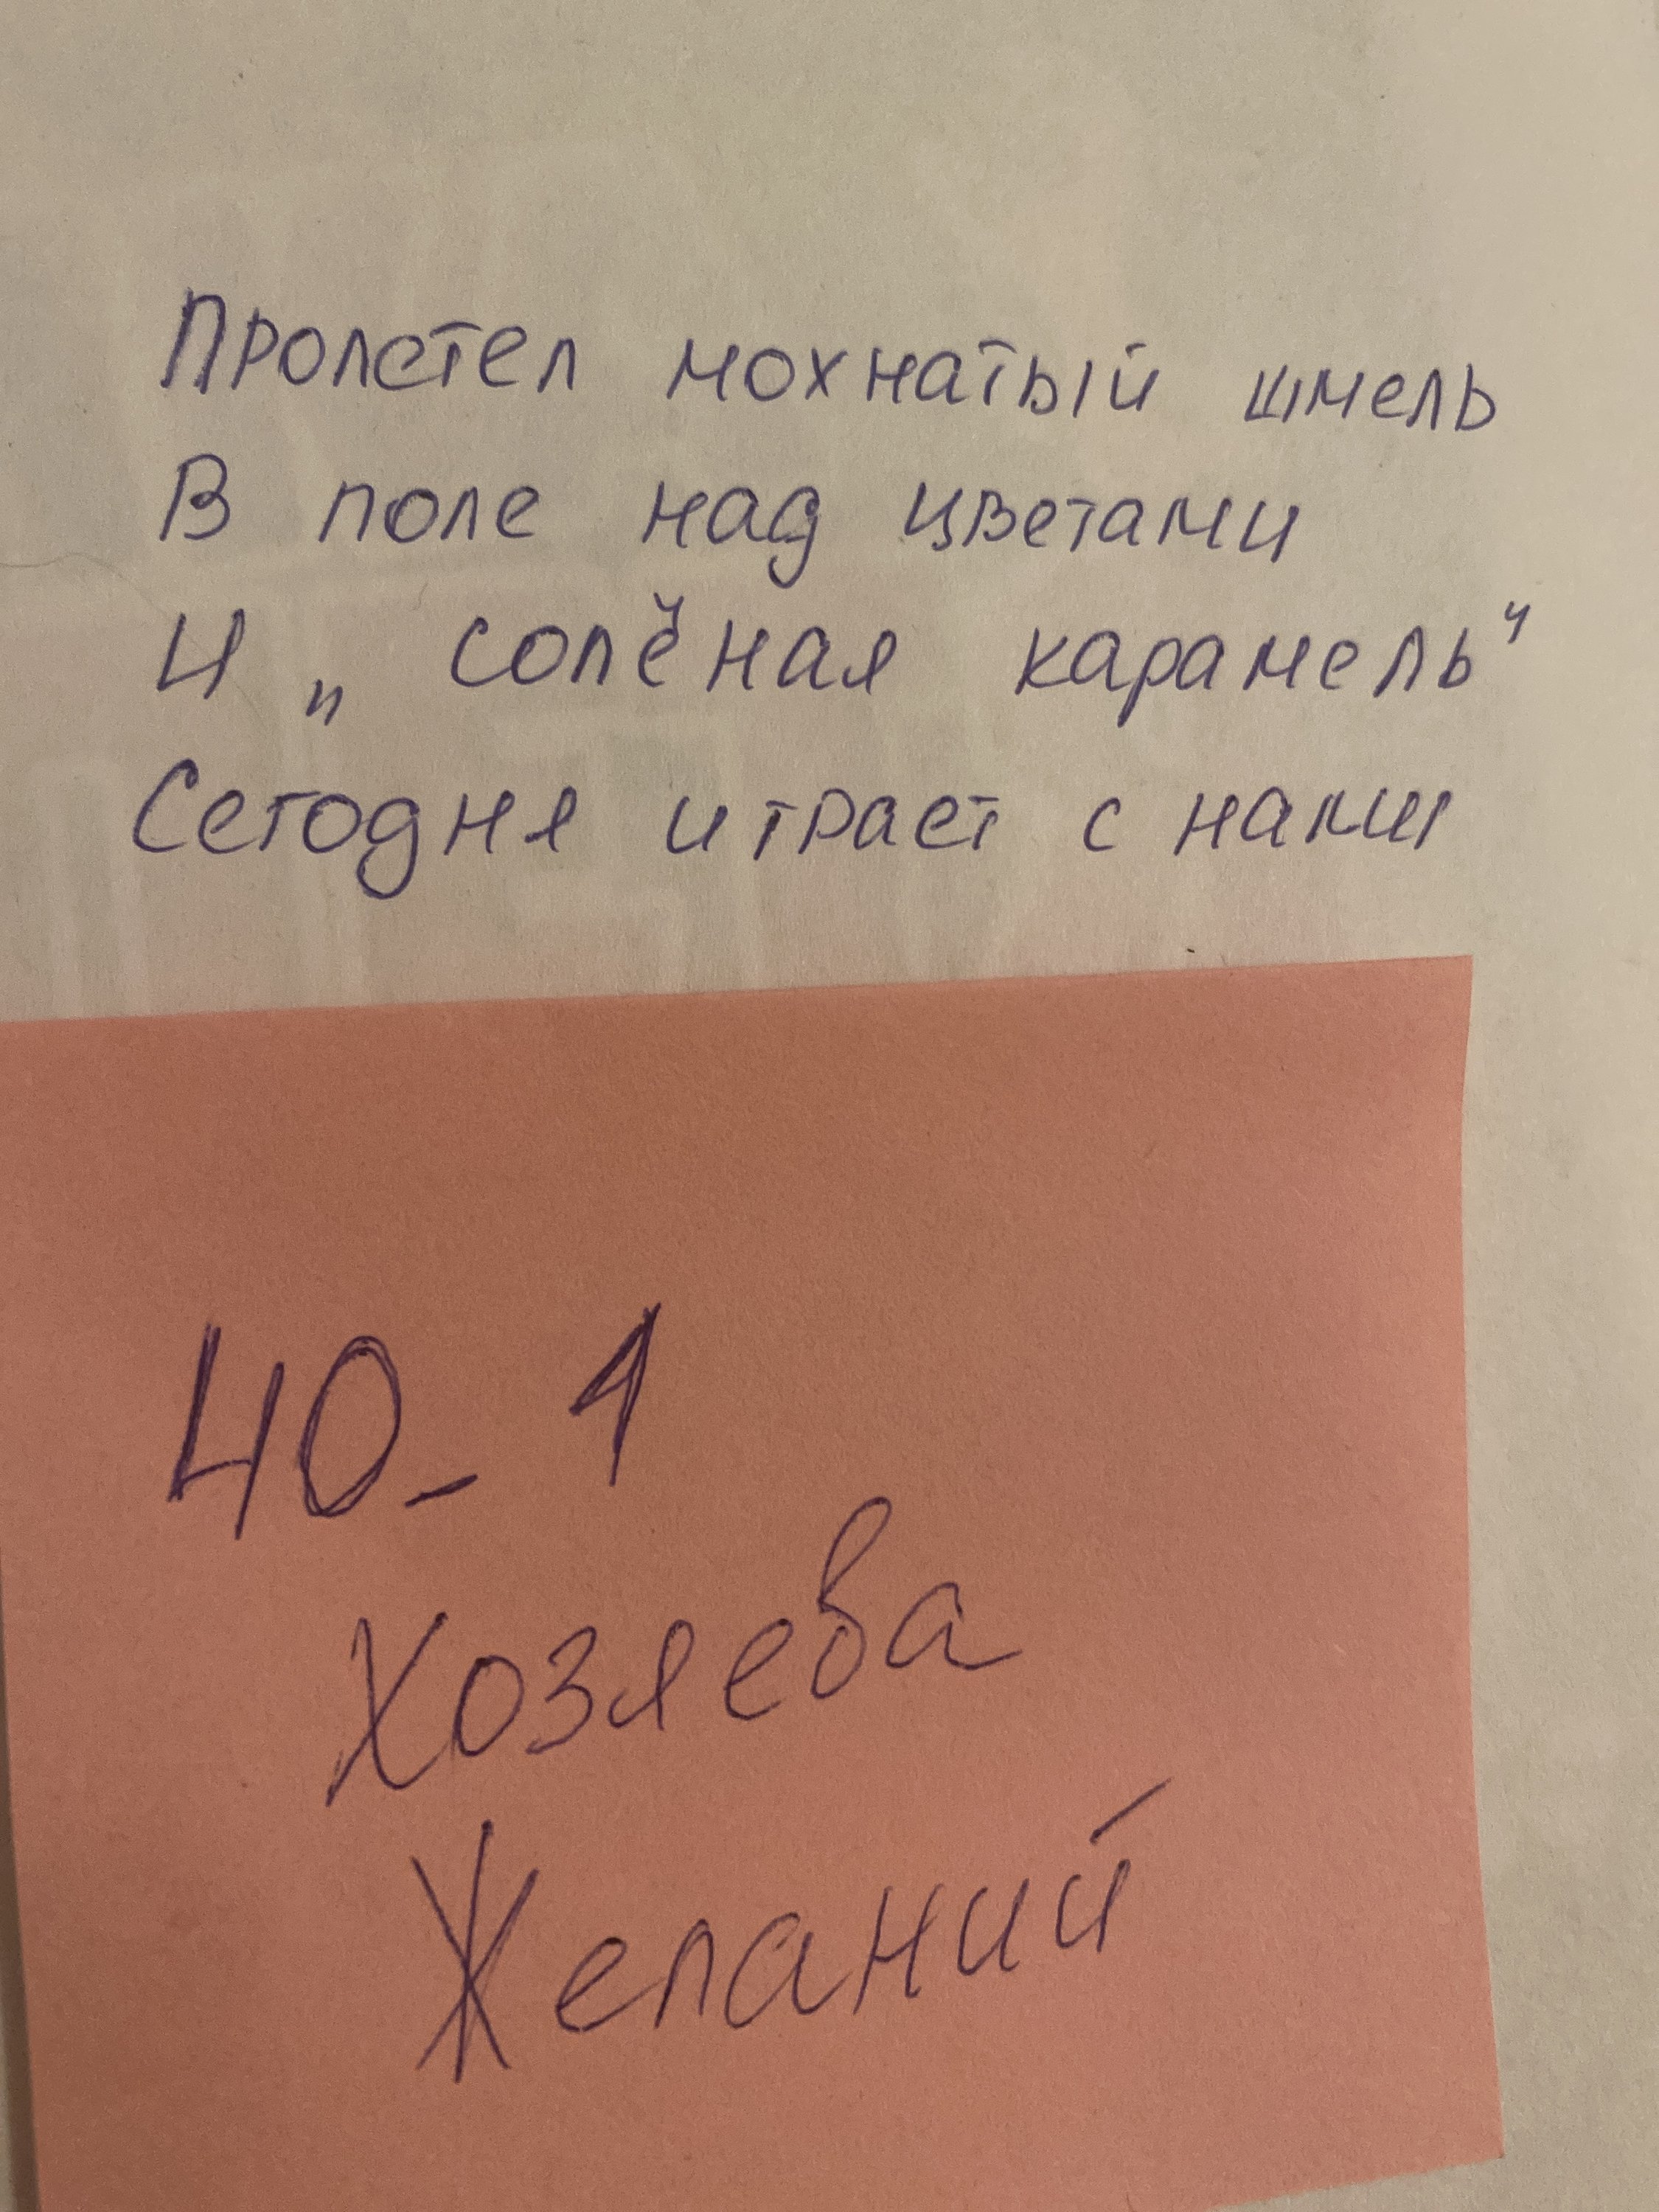 Пролетел мохнатый шмель
В поле над цветами
И „солёная карамель“
Сегодня играет с нами
40-1
Хозяева
Желаний